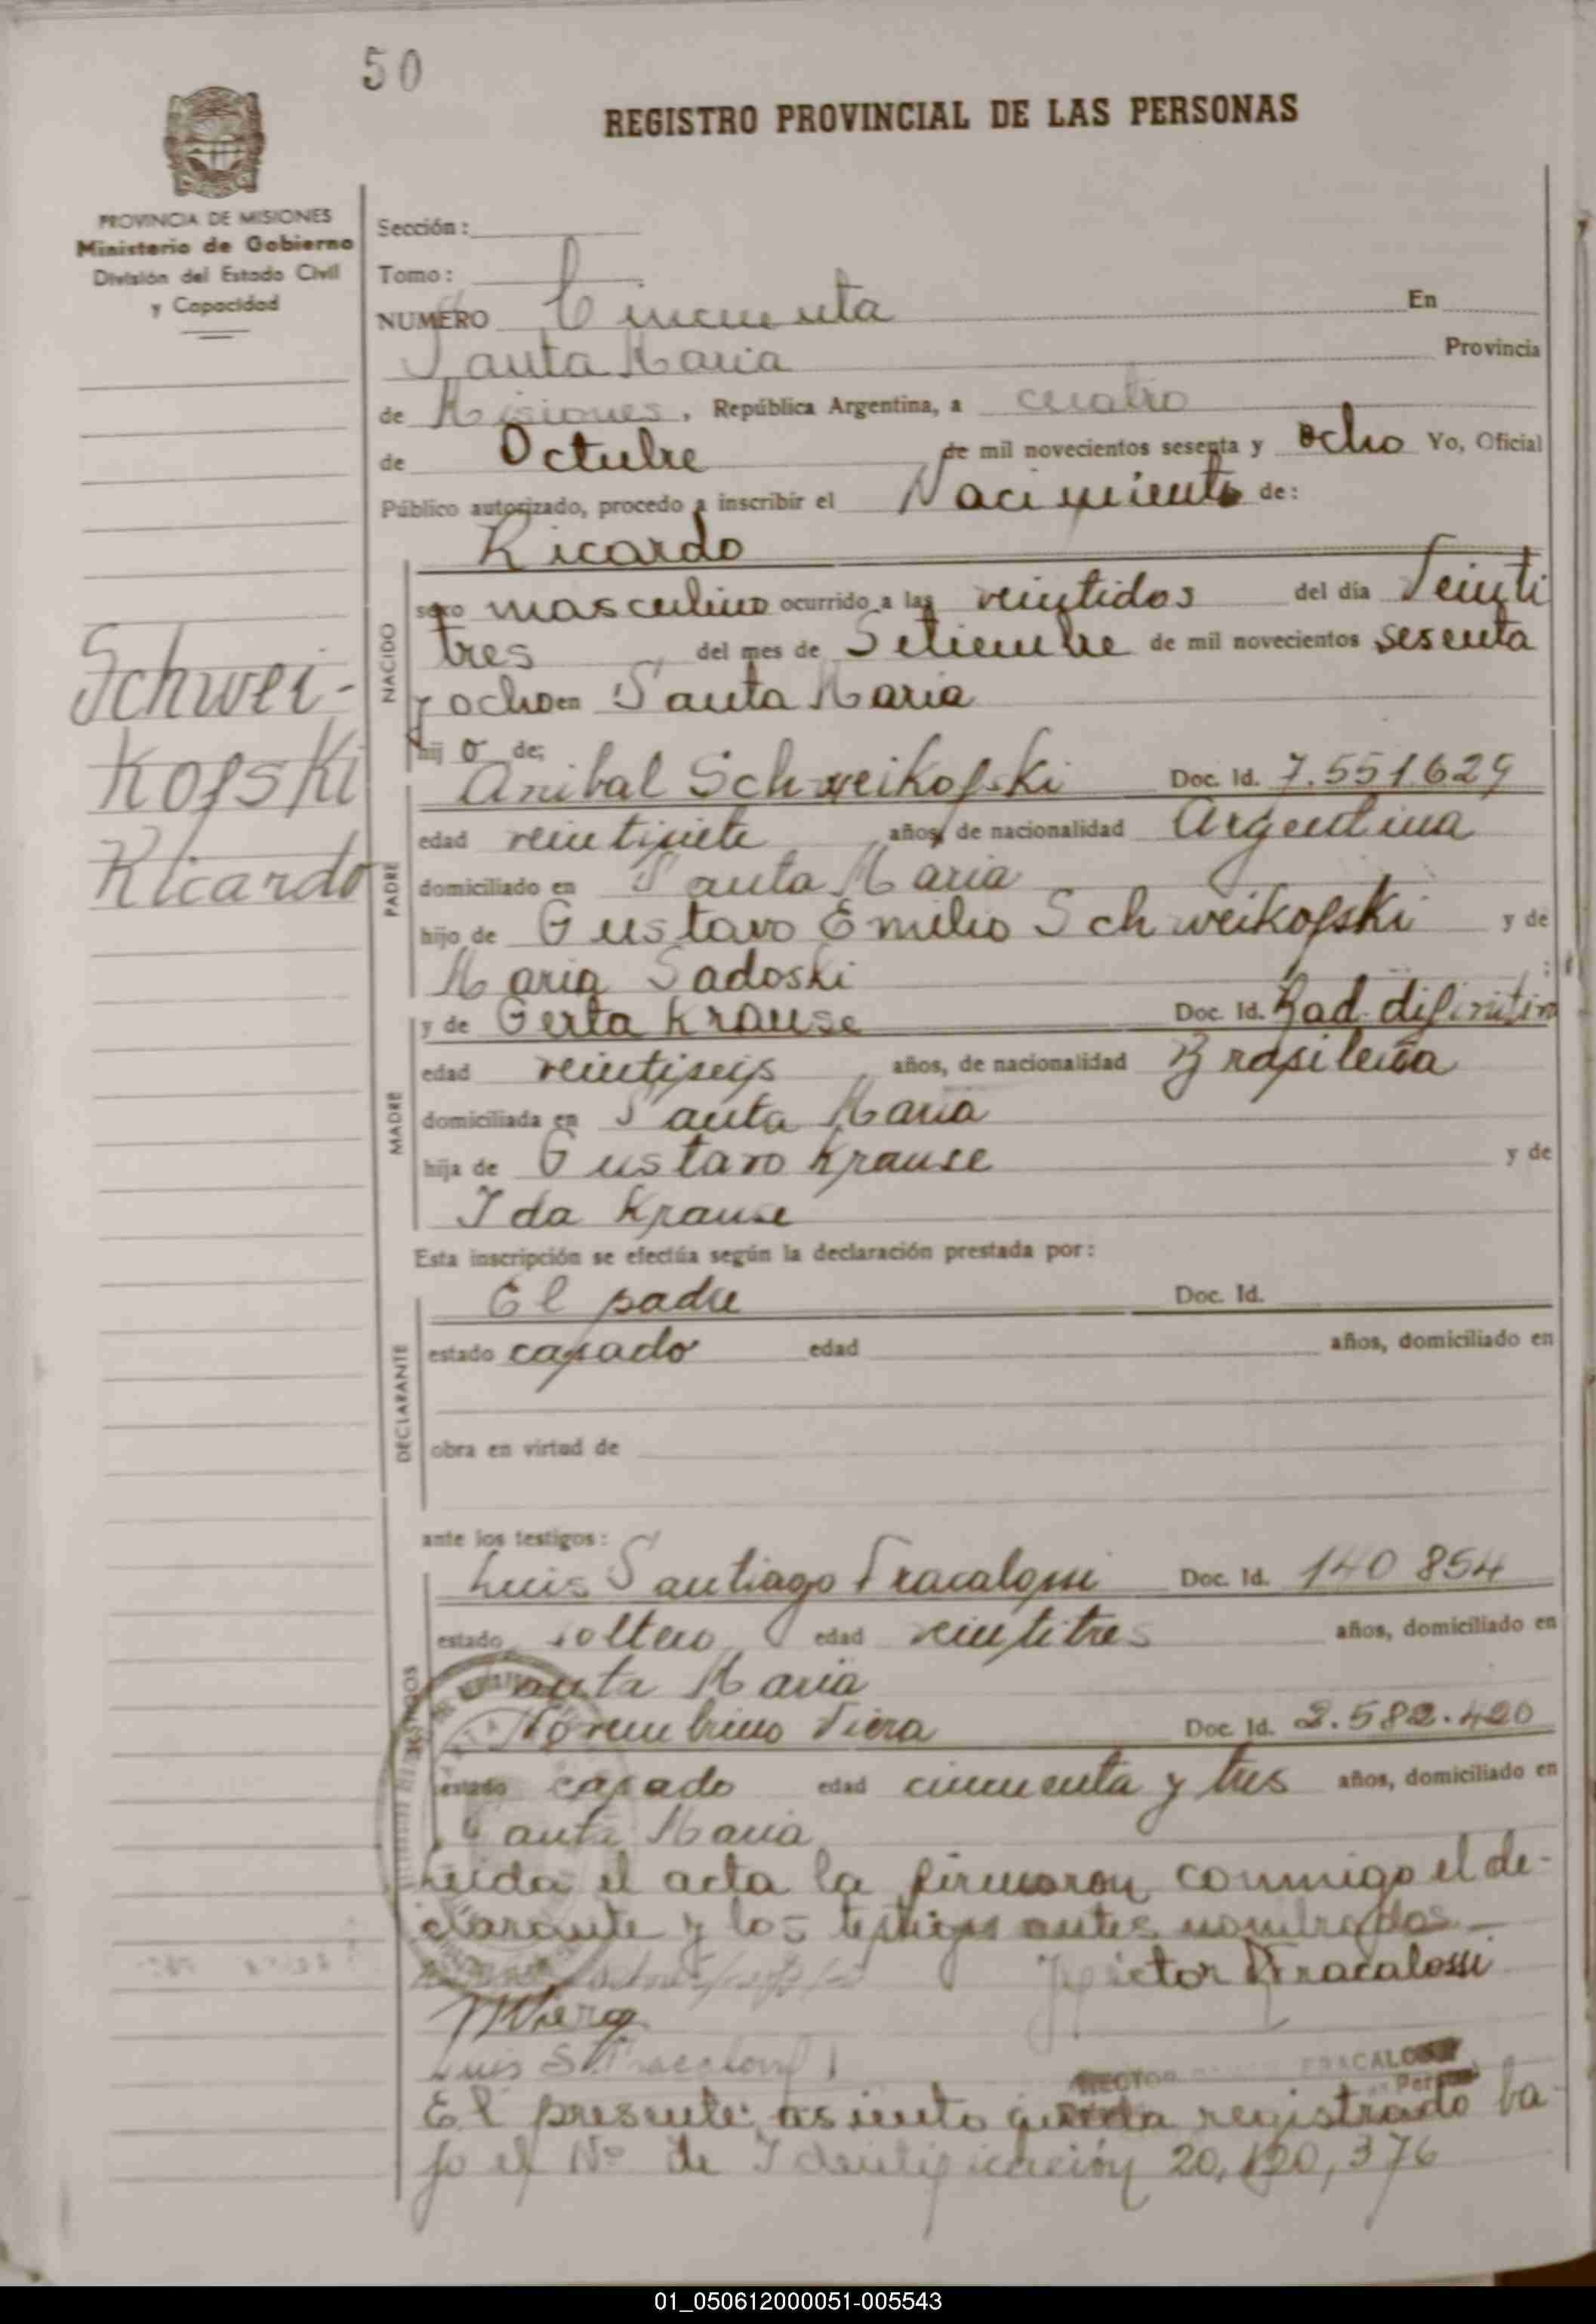 50
REGISTRO PROVINCIAL DE LAS PERSONAS
PROVINCIA DE MISIONES
Ministerio de Gobierno
División del Estado Civil
y Capacidad
Sección:
Tomo:
NUMERO Cincuenta En
Santa Maria Provincia
de Misiones, República Argentina, a cuatro
de Octubre de mil novecientos sesenta y ocho Yo, Oficial
Público autorizado, procedo a inscribir el Nacimiento de:
Ricardo
NACIDO
sexo masculino ocurrido a las veintidos del día Veinti
tres del mes de Setiembre de mil novecientos sesenta
y ocho en Santa Maria
hij o de:
Schwei-
Kofski
Ricardo
PADRE
Anibal Schweikofski Doc. Id. 7.551.629
edad veintisiete años, de nacionalidad Argentina
domiciliado en Santa Maria
hijo de Gustavo Emilio Schweikofski y de
Maria Sadoski ;
MADRE
y de Gerta Krause Doc. Id. Rad. difinitiva
edad veintiseis años, de nacionalidad Brasileña
domiciliada en Santa Maria
hija de Gustavo Krause y de
Ida Krause
Esta inscripción se efectúa según la declaración prestada por:
DECLARANTE
El padre Doc. Id.
estado casado edad años, domiciliado en
obra en virtud de
ante los testigos:
TESTIGOS
Luis Santiago Fracalossi Doc. Id. 140 854
estado soltero edad veintitres años, domiciliado en
Santa Maria
Norembrino Viera Doc. Id. 2.582.420
estado casado edad cincuenta y tres años, domiciliado en
Santa Maria
Leida el acta la firmaron conmigo el de-
clarante y los testigos antes nombrados
Hector Fracalossi
MViera
Luis S. Fracalossi
HECTOR FRACALOSSI
El presente asiento queda registrado ba
jo el Nº de Identificación 20,120,376
01_050612000051-005543